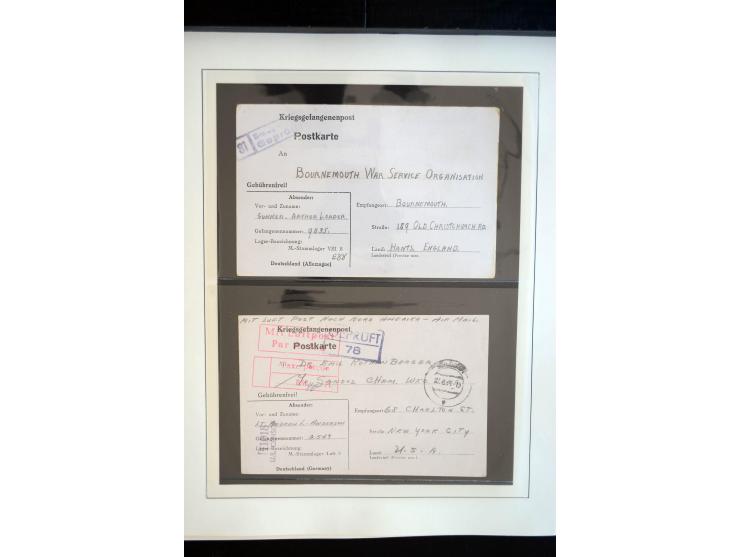 Kriegsgefangenenpost
Postkarte
An
BOURNEMOUTH WAR SERVICE ORGANISATION
Gebührenfrei!
Absender:
Vor- und Zuname:
GUNNER. ARTHUR LOADER
Gefangenennummer: 9835.
Lager-Bezeichnung:
M.-Stammlager VIII B
E88
Deutschland (Allemagne)
Empfangsort: BOURNEMOUTH.
Straße: 189 OLD CHRISTCHURCH RD.
Land: HANTS. ENGLAND.
Landesteil (Provinz usw.)
MIT LUFT POST NACH NORD AMERIKA - AIR MAIL.
Kriegsgefangenenpost
Mit Luftpost
Par
GEPRÜFT
78
Postkarte
DR. EMIL
SANDOZ CHEM. WKS.
Gebührenfrei!
Absender:
Vor- und Zuname:
Gefangenennummer:
Lager-Bezeichnung:
M.-Stammlager Luft 3
Deutschland (Germany)
Empfangsort: 68 CHARLTON ST.
Straße: NEW YORK CITY.
Land: U.S.A.
Landesteil (Provinz usw.)